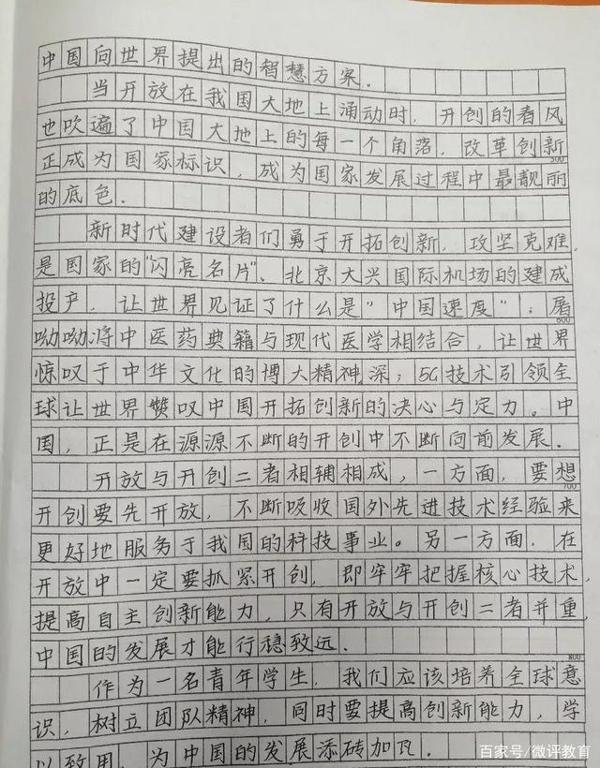 中国向世界提出的智慧方案.
当开放在我国大地上涌动时,开创的春风
也吹遍了中国大地上的每一个角落.改革创新
500
正成为国家标识,成为国家发展过程中最靓丽
的底色.
新时代建设者们勇于开拓创新,攻坚克难,
是国家的"闪亮名片"、北京大兴国际机场的建成
投产,让世界见证了什么是"中国速度";屠
600
呦呦将中医药典籍与现代医学相结合,让世界
惊叹于中华文化的博大精神深;5G技术引领全
球让世界赞叹中国开拓创新的决心与定力。中
国,正是在源源不断的开创中不断向前发展.
开放与开创二者相辅相成,一方面,要想
700
开创要先开放,不断吸收国外先进技术经验来
更好地服务于我国的科技事业。另一方面.在
开放中一定要抓紧开创,即牢牢把握核心技术,
提高自主创新能力,只有开放与开创二者并重,
中国的发展才能行稳致远.
800
作为一名青年学生,我们应该培养全球意
识,树立团队精神,同时要提高创新能力,学
以致用,为中国的发展添砖加瓦.
百家号/微评教育